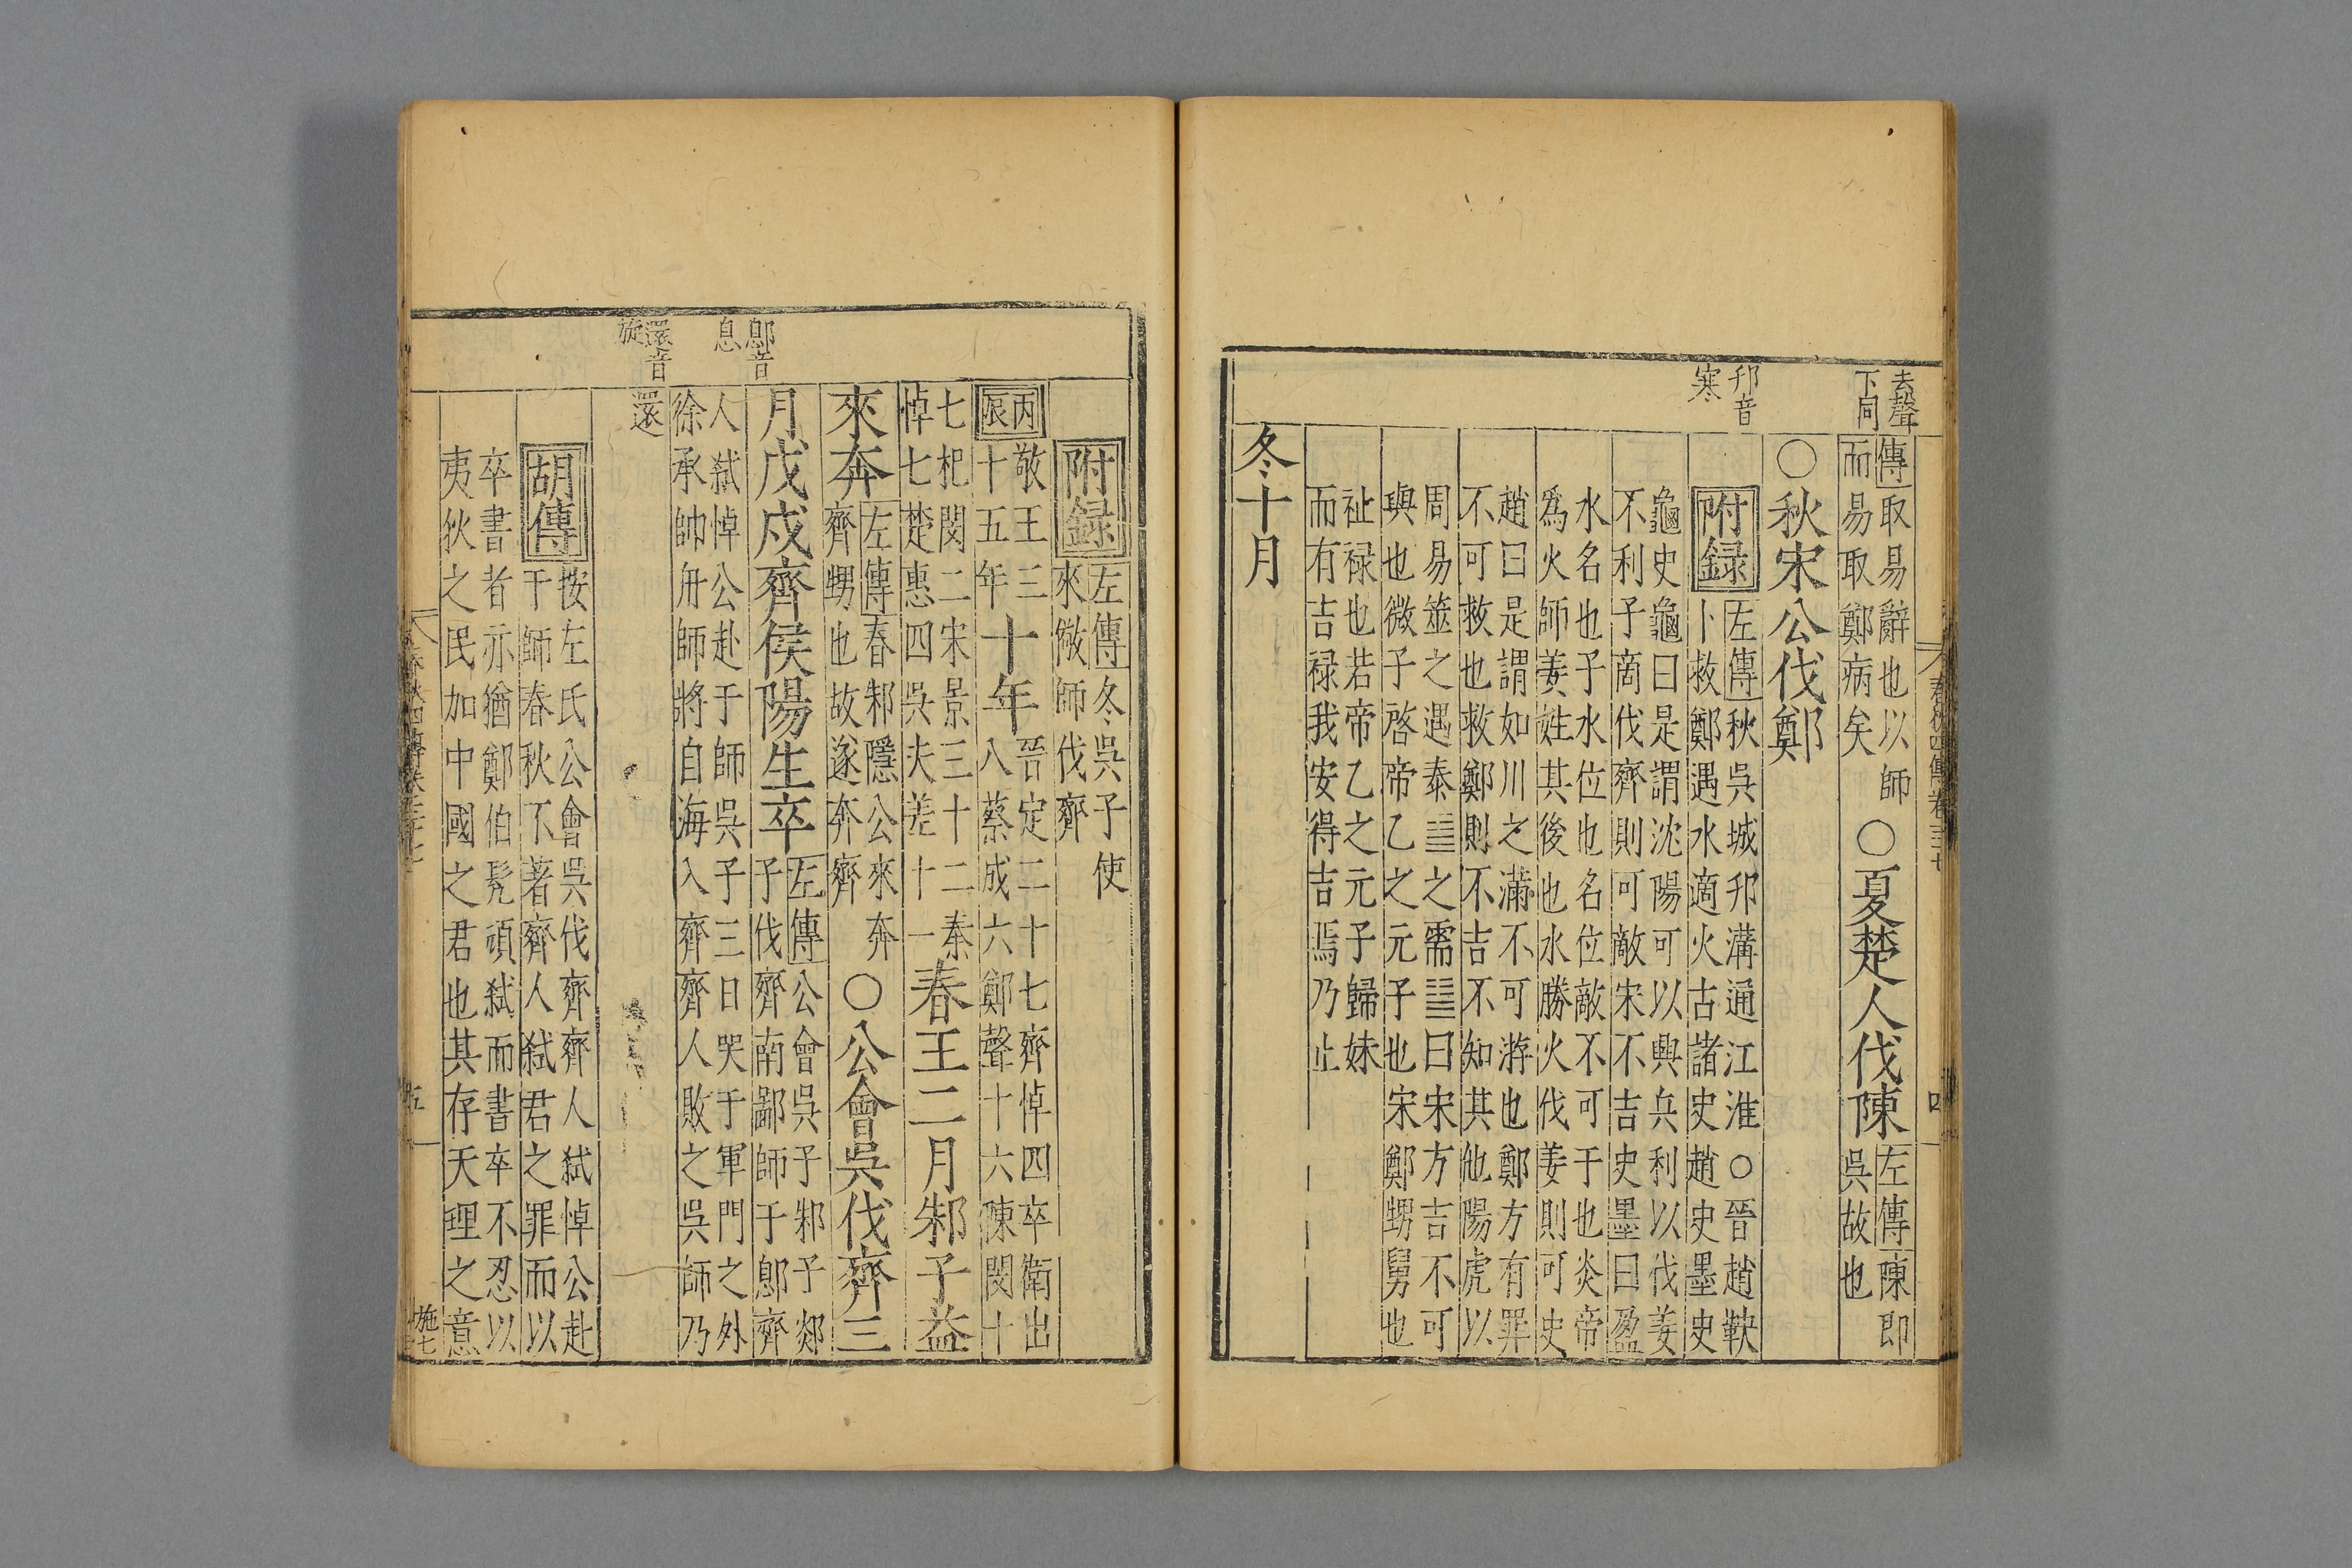 去聲
下同
邗音
寒
傳取易辭也以師
而易取鄭病矣
○夏楚人伐陳
左傳陳即
吳故也
○秋宋公伐鄭
附録
左傳秋吳城邗溝通江淮○晉趙鞅
卜救鄭遇水適火占諸史趙史墨史
龜史龜曰是謂沈陽可以興兵利以伐姜
不利子商伐齊則可敵宋不吉史墨曰盈
水名也子水位也名位敵不可干也炎帝
爲火師姜姓其後也水勝火伐姜則可史
趙曰是謂如川之滿不可游也鄭方有罪
不可救也救鄭則不吉不知其他陽虎以
周易筮之遇泰䷊之需䷄曰宋方吉不可
與也微子啓帝乙之元子也宋鄭甥舅也
祉禄也若帝乙之元子歸妹
而有吉禄我安得吉焉乃止
冬十月
春秋四傳卷三十七
四
郎音
息
還音
旋
附録
左傳冬吳子使
來儆師伐齊
丙
辰
敬王三
十五年
十年
晉定二十七齊悼四卒衛出
八蔡成六鄭聲十六陳閔十
七杞閔二宋景三十二秦
悼七楚惠四吳夫差十一
春王二月邾子益
來奔
左傳春邾隱公來奔
齊甥也故遂奔齊
○公會吳伐齊三
月戊戌齊侯陽生卒
左傳公會吳子邾子郯
子伐齊南鄙師于鄎齊
人弑悼公赴于師吳子三日哭于軍門之外
徐承帥舟師將自海入齊齊人敗之吳師乃
還
胡傳
按左氏公會吳伐齊齊人弑悼公赴
于師春秋不著齊人弑君之罪而以
卒書者亦猶鄭伯髡頑弑而書卒不忍以
夷狄之民加中國之君也其存天理之意
春秋四傳卷三十七
五
施七